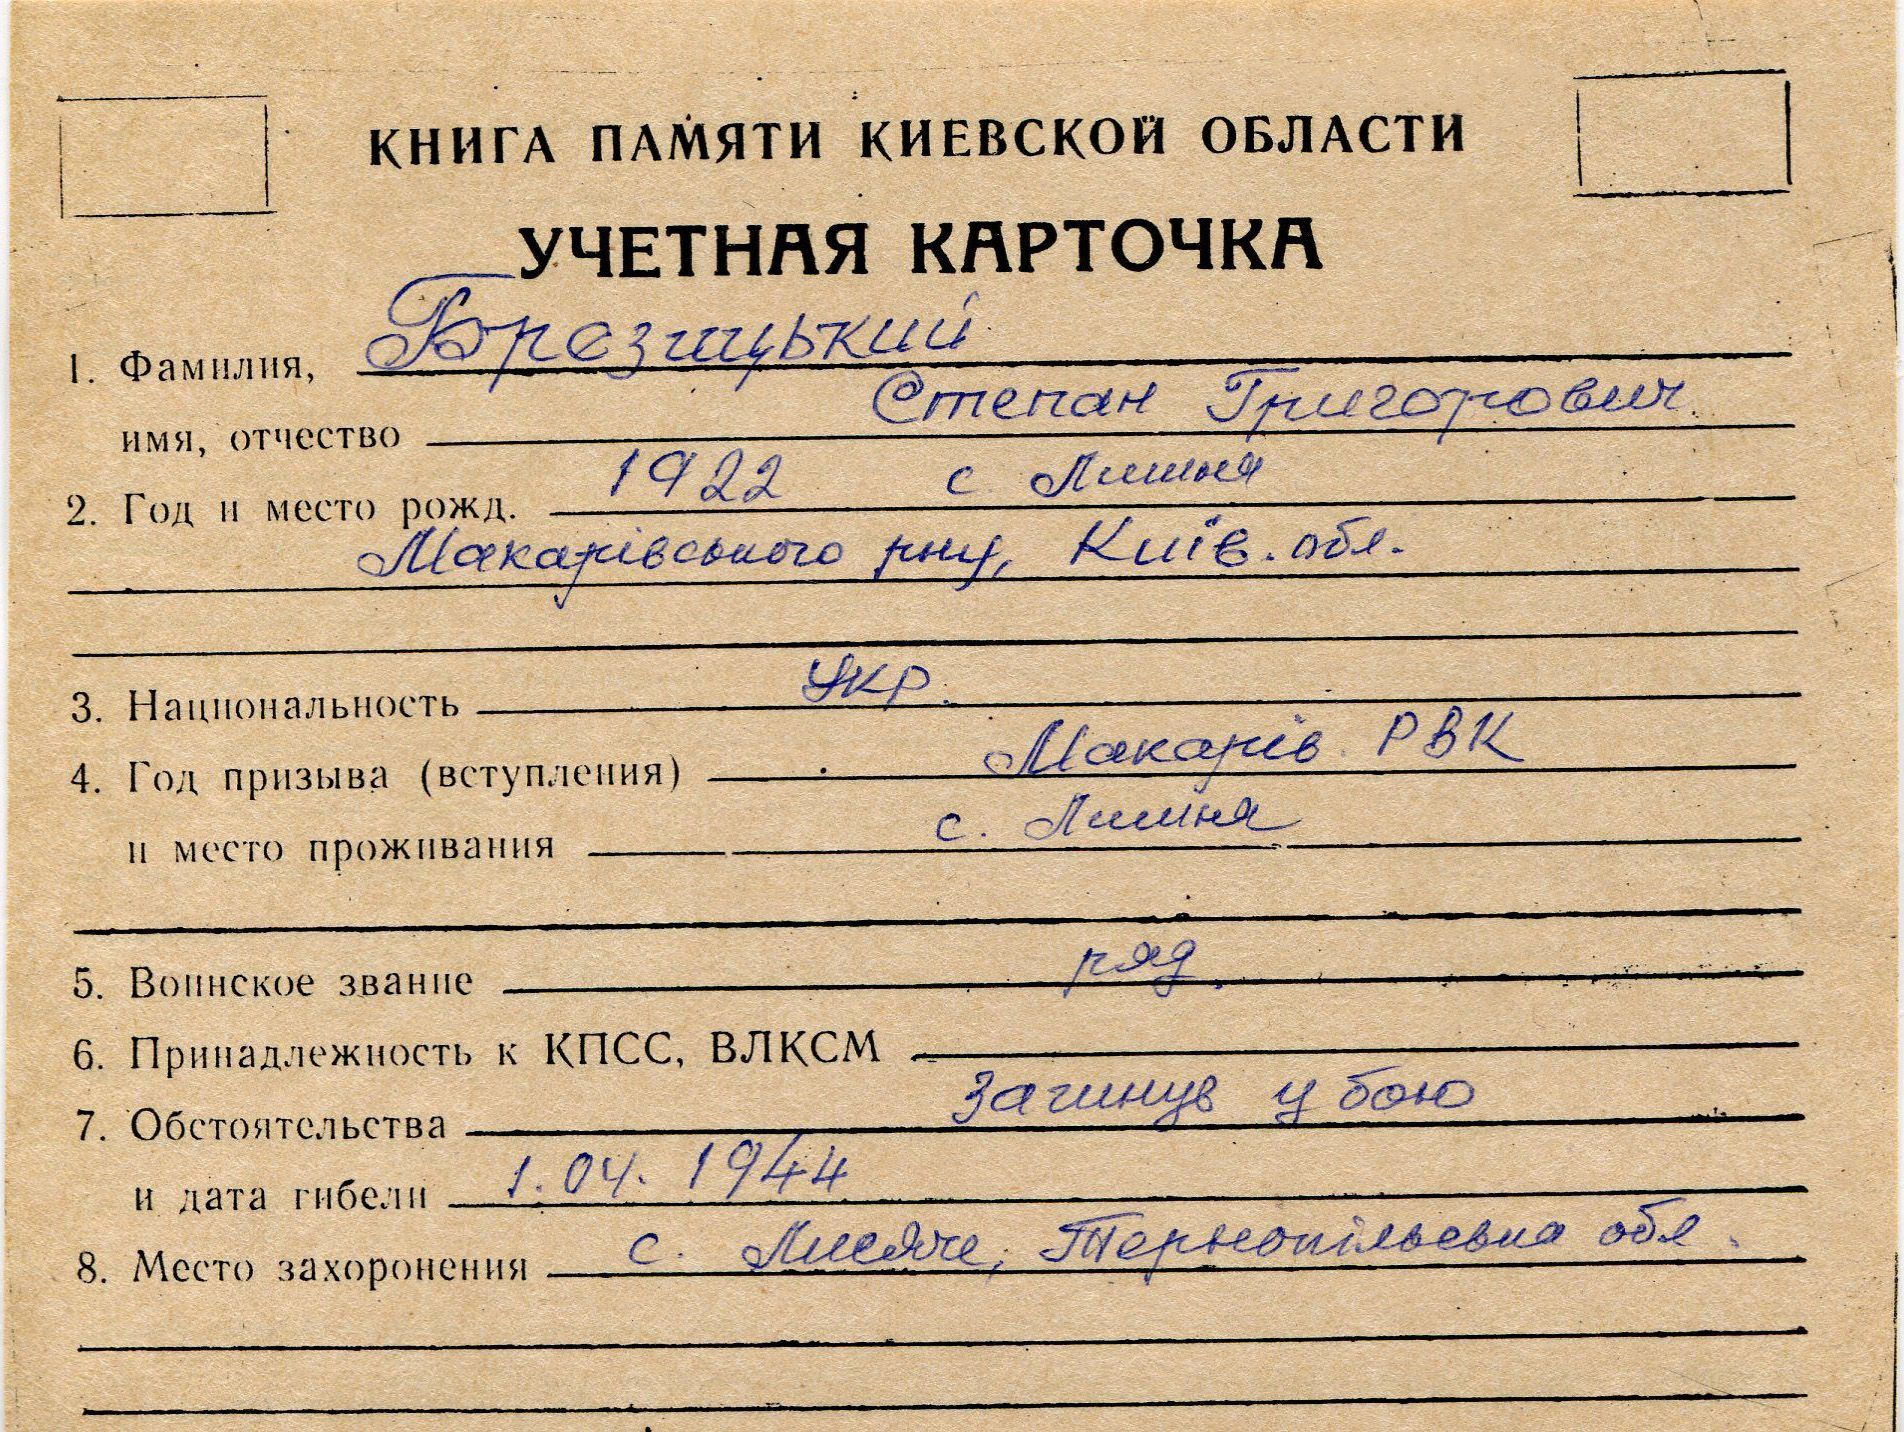 КНИГА ПАМЯТИ КИЕВСКОЙ ОБЛАСТИ
УЧЕТНАЯ КАРТОЧКА
1. Фамилия, Брезицький
имя, отчество Степан Григорович
2. Год и место рожд. 1922 с Лишня
Макарівського рну, Київ. обл.
3. Национальность Укр.
4. Год призыва (вступления) Макарів. РВК
и место проживания с. Лишня
5. Воинское звание ряд.
6. Принадлежность к КПСС, ВЛКСМ
7. Обстоятельства Загинув у бою
и дата гибели 1.04. 1944
8. Место захоронения с. Тернопільська обл.